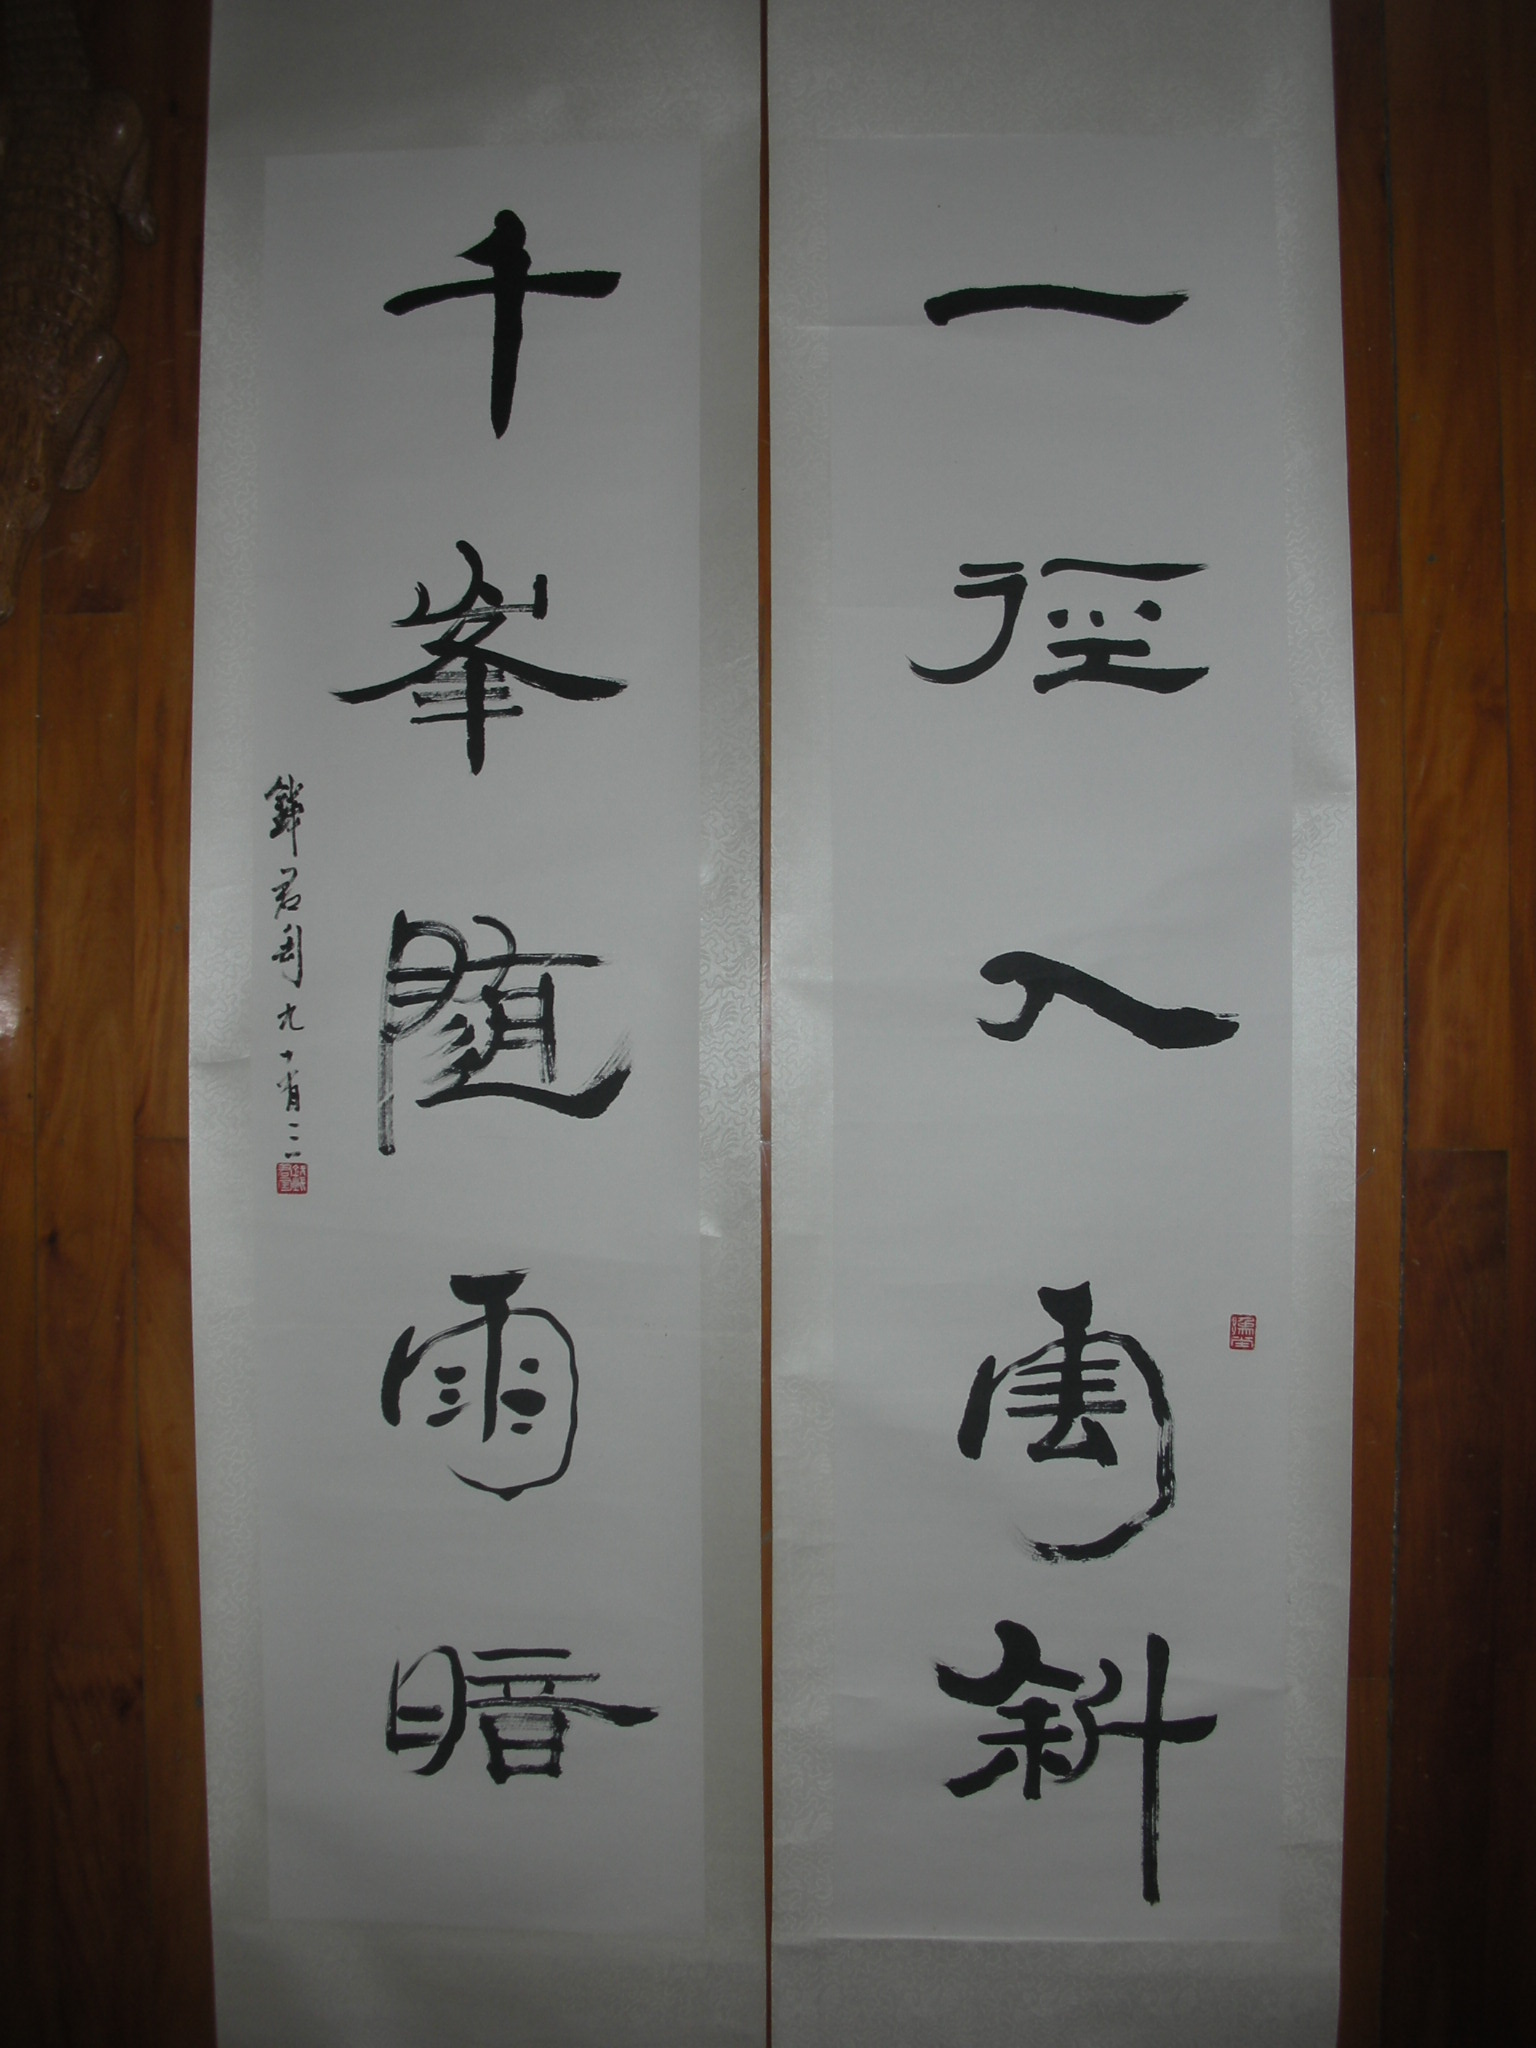 一徑入雲斜
千峯隨雨暗
錢君匋九十有二